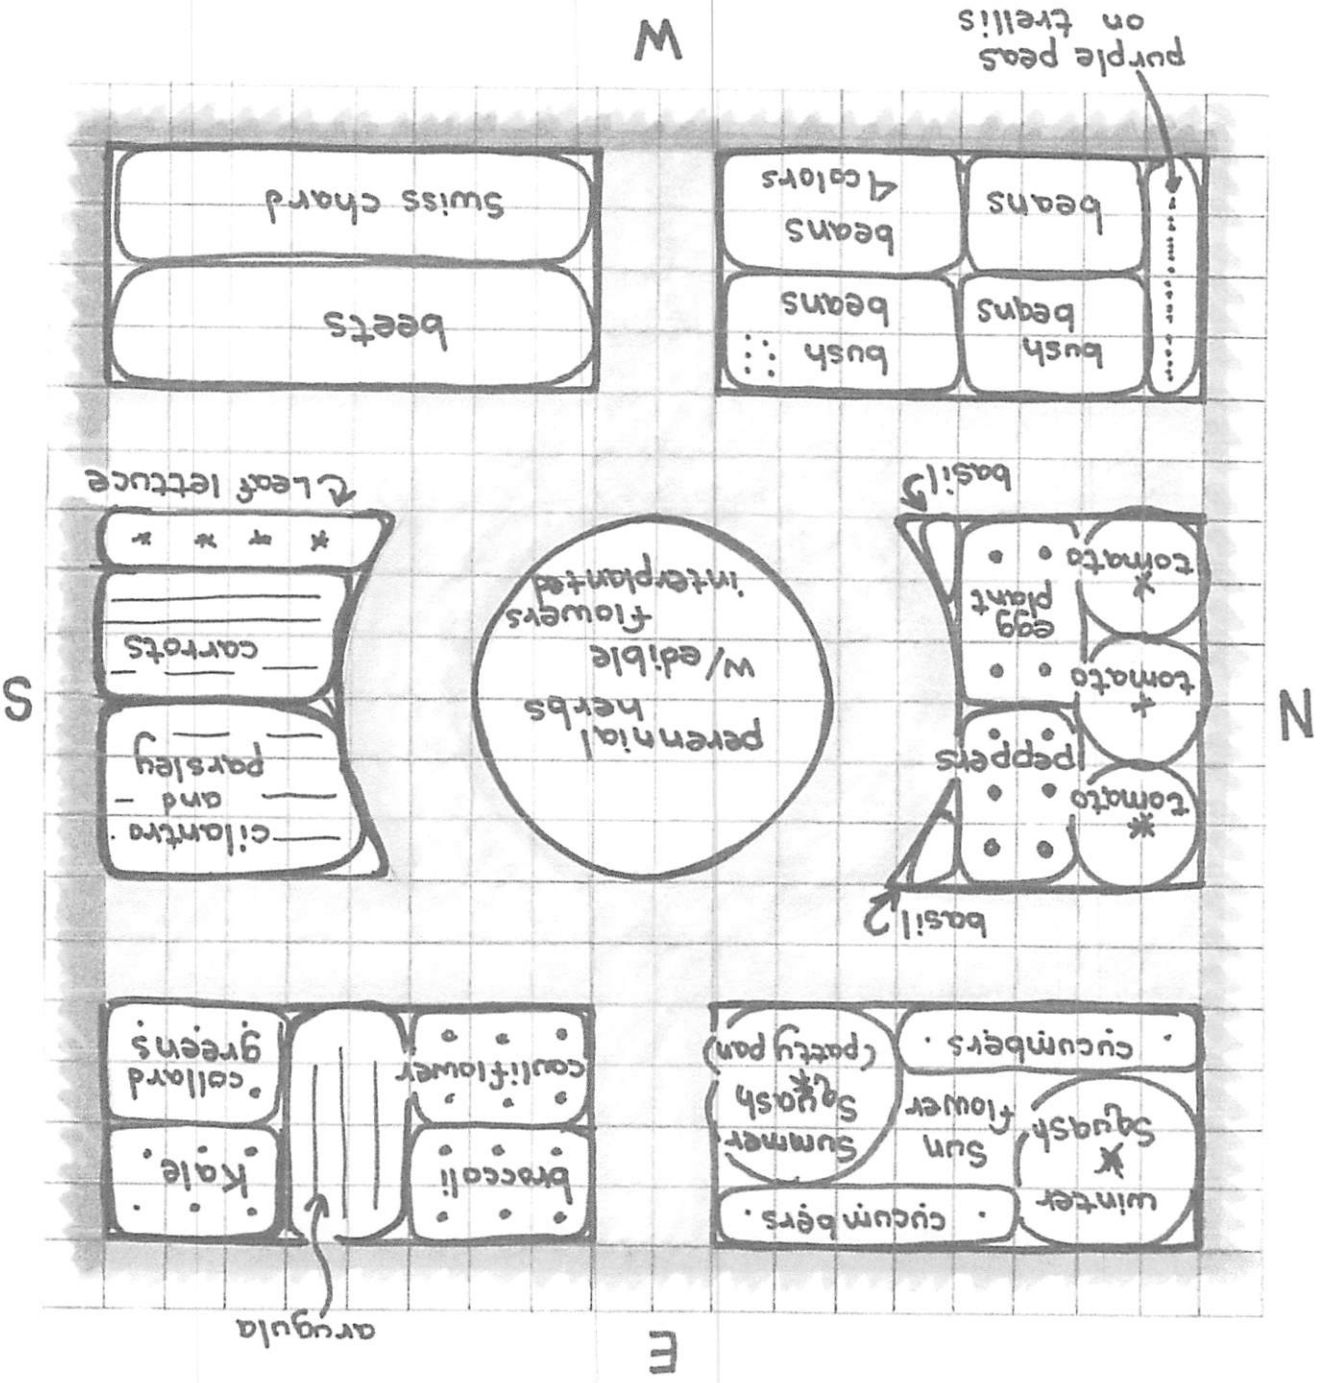 E
arugula
winter
squash
cucumbers
sun
flower
summer
squash
(patty pan)
cucumbers
broccoli
cauliflower
Kale
collard
greens
N
basil
tomato
peppers
tomato
egg
plant
tomato
basil
perennial
herbs
w/edible
flowers
interplanted
cilantro
and
parsley
carrots
Leaf lettuce
S
bush
beans
bush
beans
beans
beans
4 colors
purple peas
on trellis
beets
Swiss chard
W